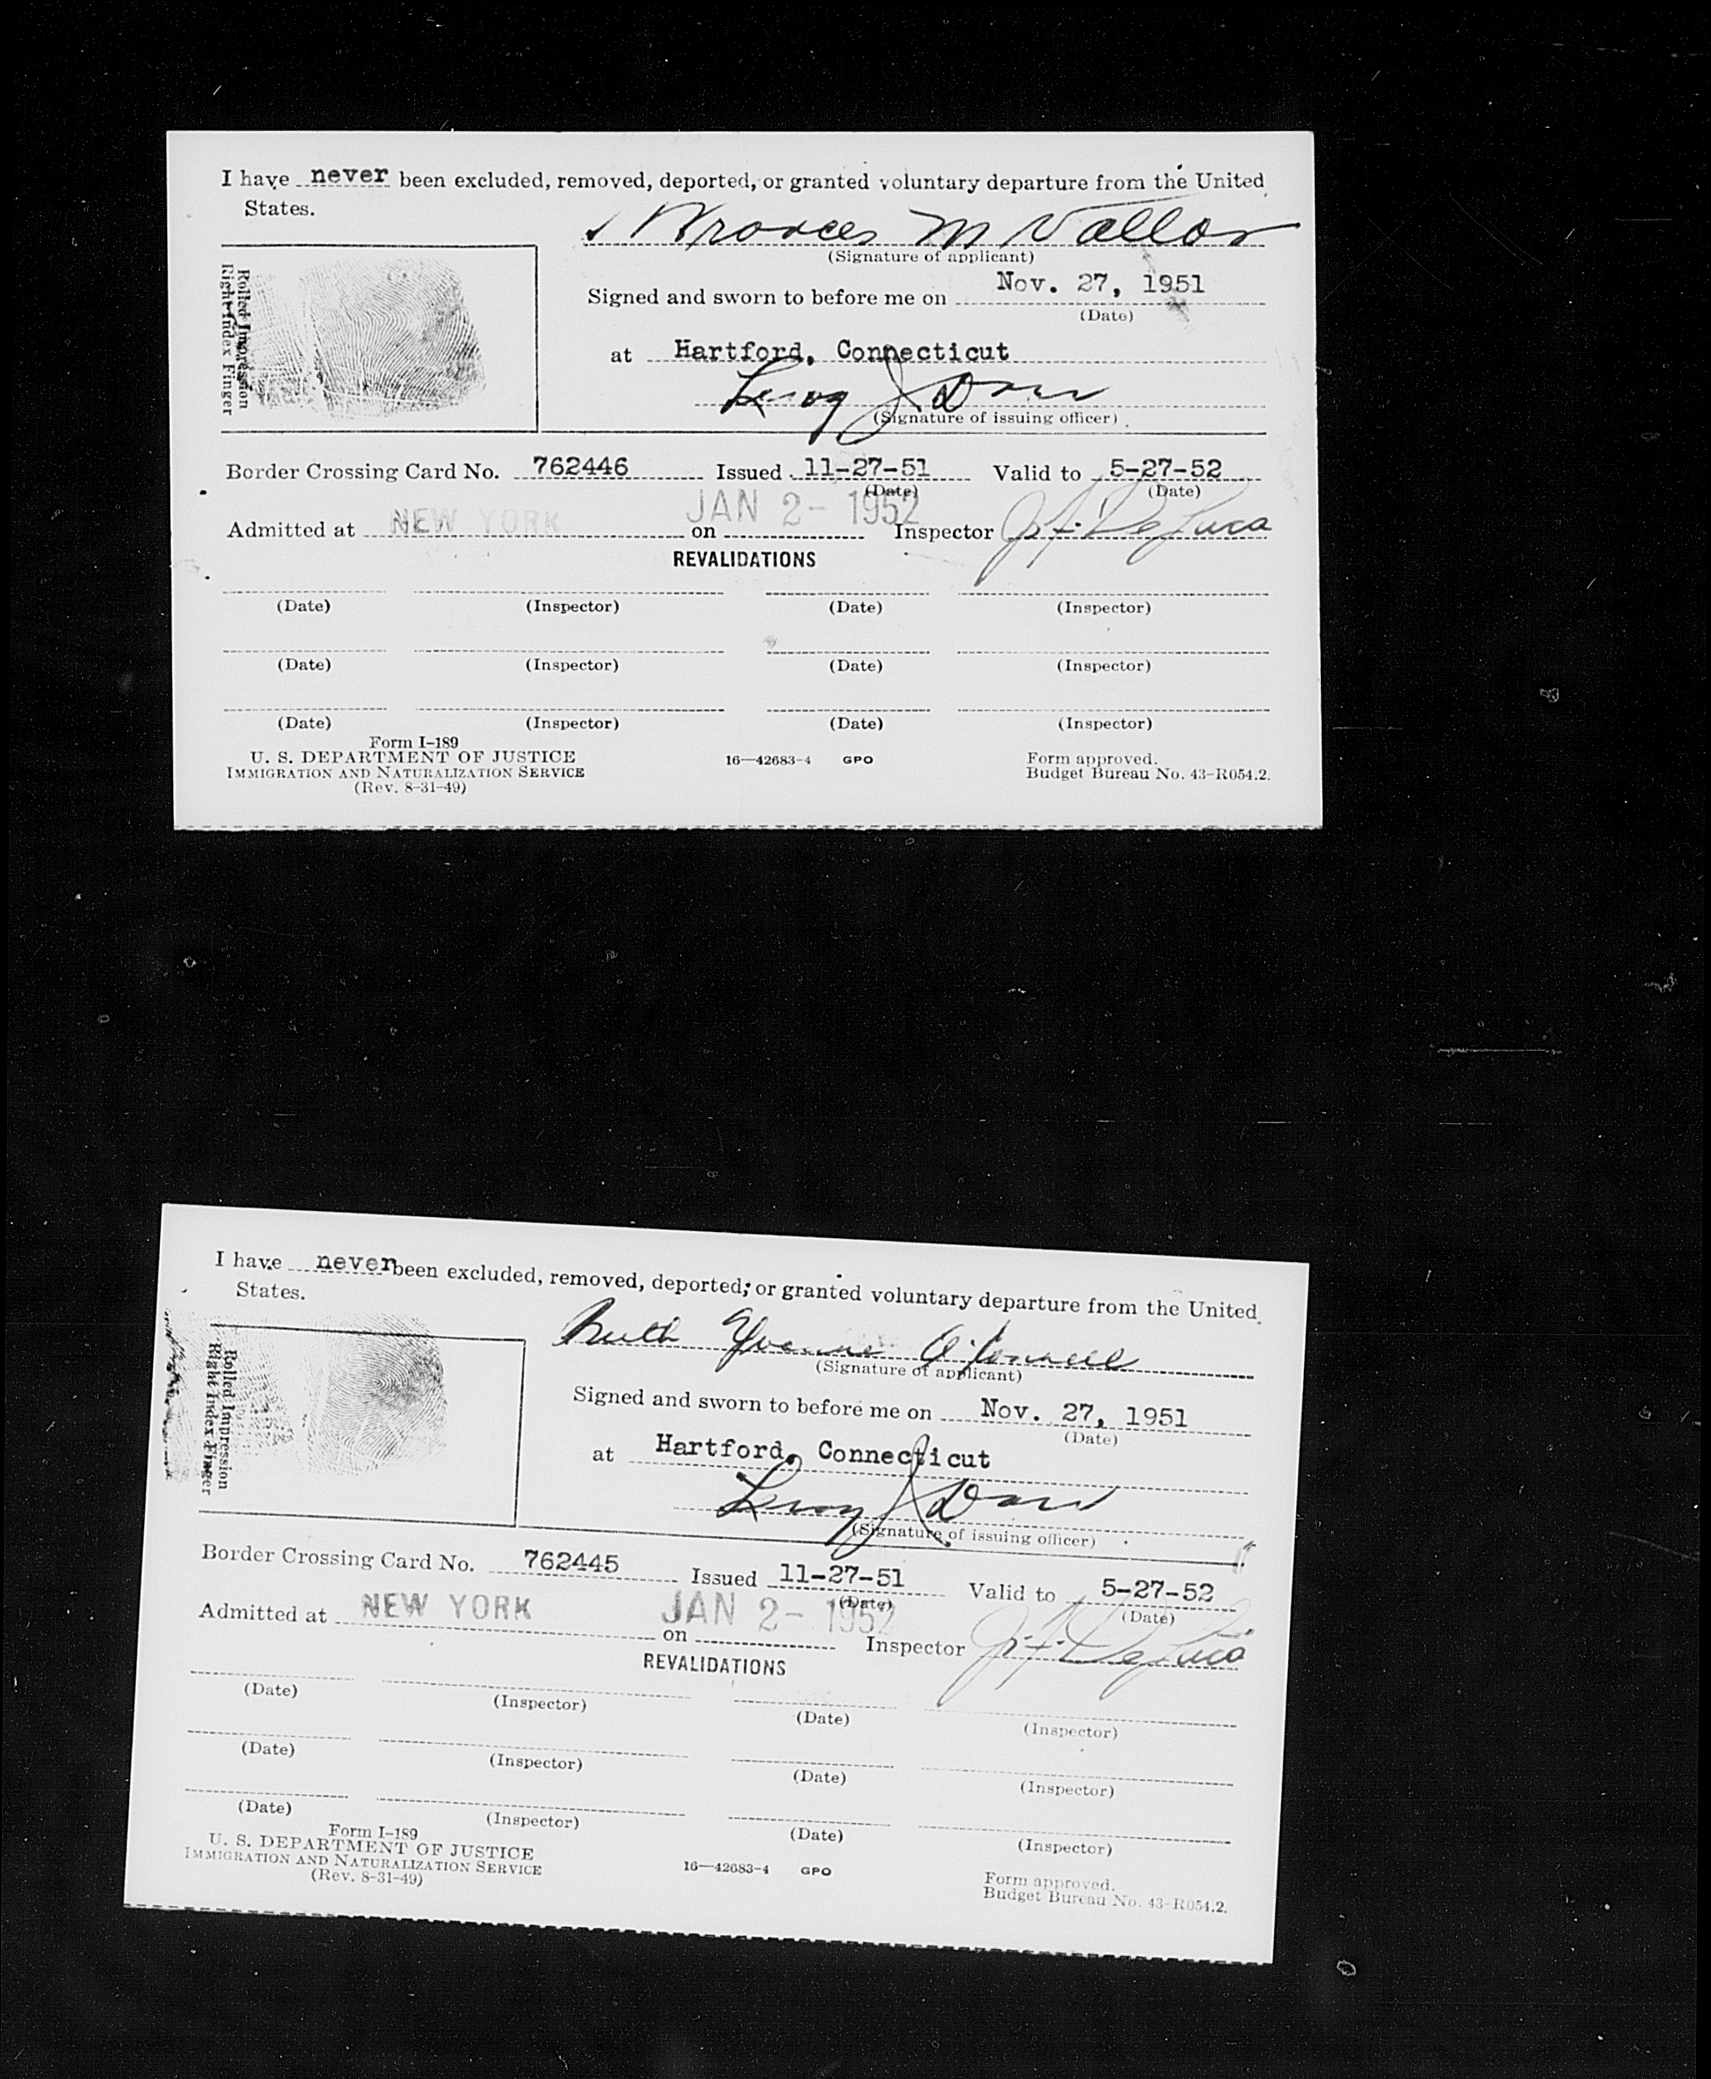 I have never been excluded, removed, deported, or granted voluntary departure from the United
States.
M Vallor
(Signature of applicant)
Rolled Impression
Right Index Finger
Signed and sworn to before me on Nov. 27, 1951
(Date)
at Hartford, Connecticut
Leroy J Dow
(Signature of issuing officer)
Border Crossing Card No. 762446 Issued 11-27-51 Valid to 5-27-52
(Date) (Date)
Admitted at NEW YORK on JAN 2- 1952 Inspector J. F. DeLuca
REVALIDATIONS
(Date) (Inspector) (Date) (Inspector)
(Date) (Inspector) (Date) (Inspector)
(Date) (Inspector) (Date) (Inspector)
Form I-189
U. S. DEPARTMENT OF JUSTICE 16—42683-4 GPO Form approved.
IMMIGRATION AND NATURALIZATION SERVICE Budget Bureau No. 43-R054.2.
(Rev. 8-31-49)
I have never been excluded, removed, deported, or granted voluntary departure from the United
States.
Ruth Yvonne O'Connell
(Signature of applicant)
Rolled Impression
Right Index Finger
Signed and sworn to before me on Nov. 27, 1951
(Date)
at Hartford, Connecticut
Leroy J Dow
(Signature of issuing officer)
Border Crossing Card No. 762445 Issued 11-27-51 Valid to 5-27-52
(Date) (Date)
Admitted at NEW YORK on JAN 2- 1952 Inspector J. F. DeLuca
REVALIDATIONS
(Date) (Inspector) (Date) (Inspector)
(Date) (Inspector) (Date) (Inspector)
(Date) (Inspector) (Date) (Inspector)
Form I-189
U. S. DEPARTMENT OF JUSTICE 16—42683-4 GPO Form approved.
IMMIGRATION AND NATURALIZATION SERVICE Budget Bureau No. 43-R054.2.
(Rev. 8-31-49)